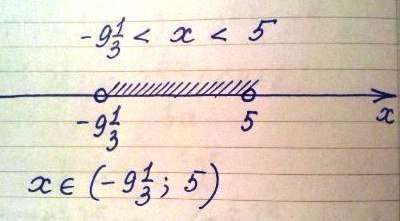 -9 1/3 < x < 5
-9 1/3 5 x
x ∈ (-9 1/3; 5)